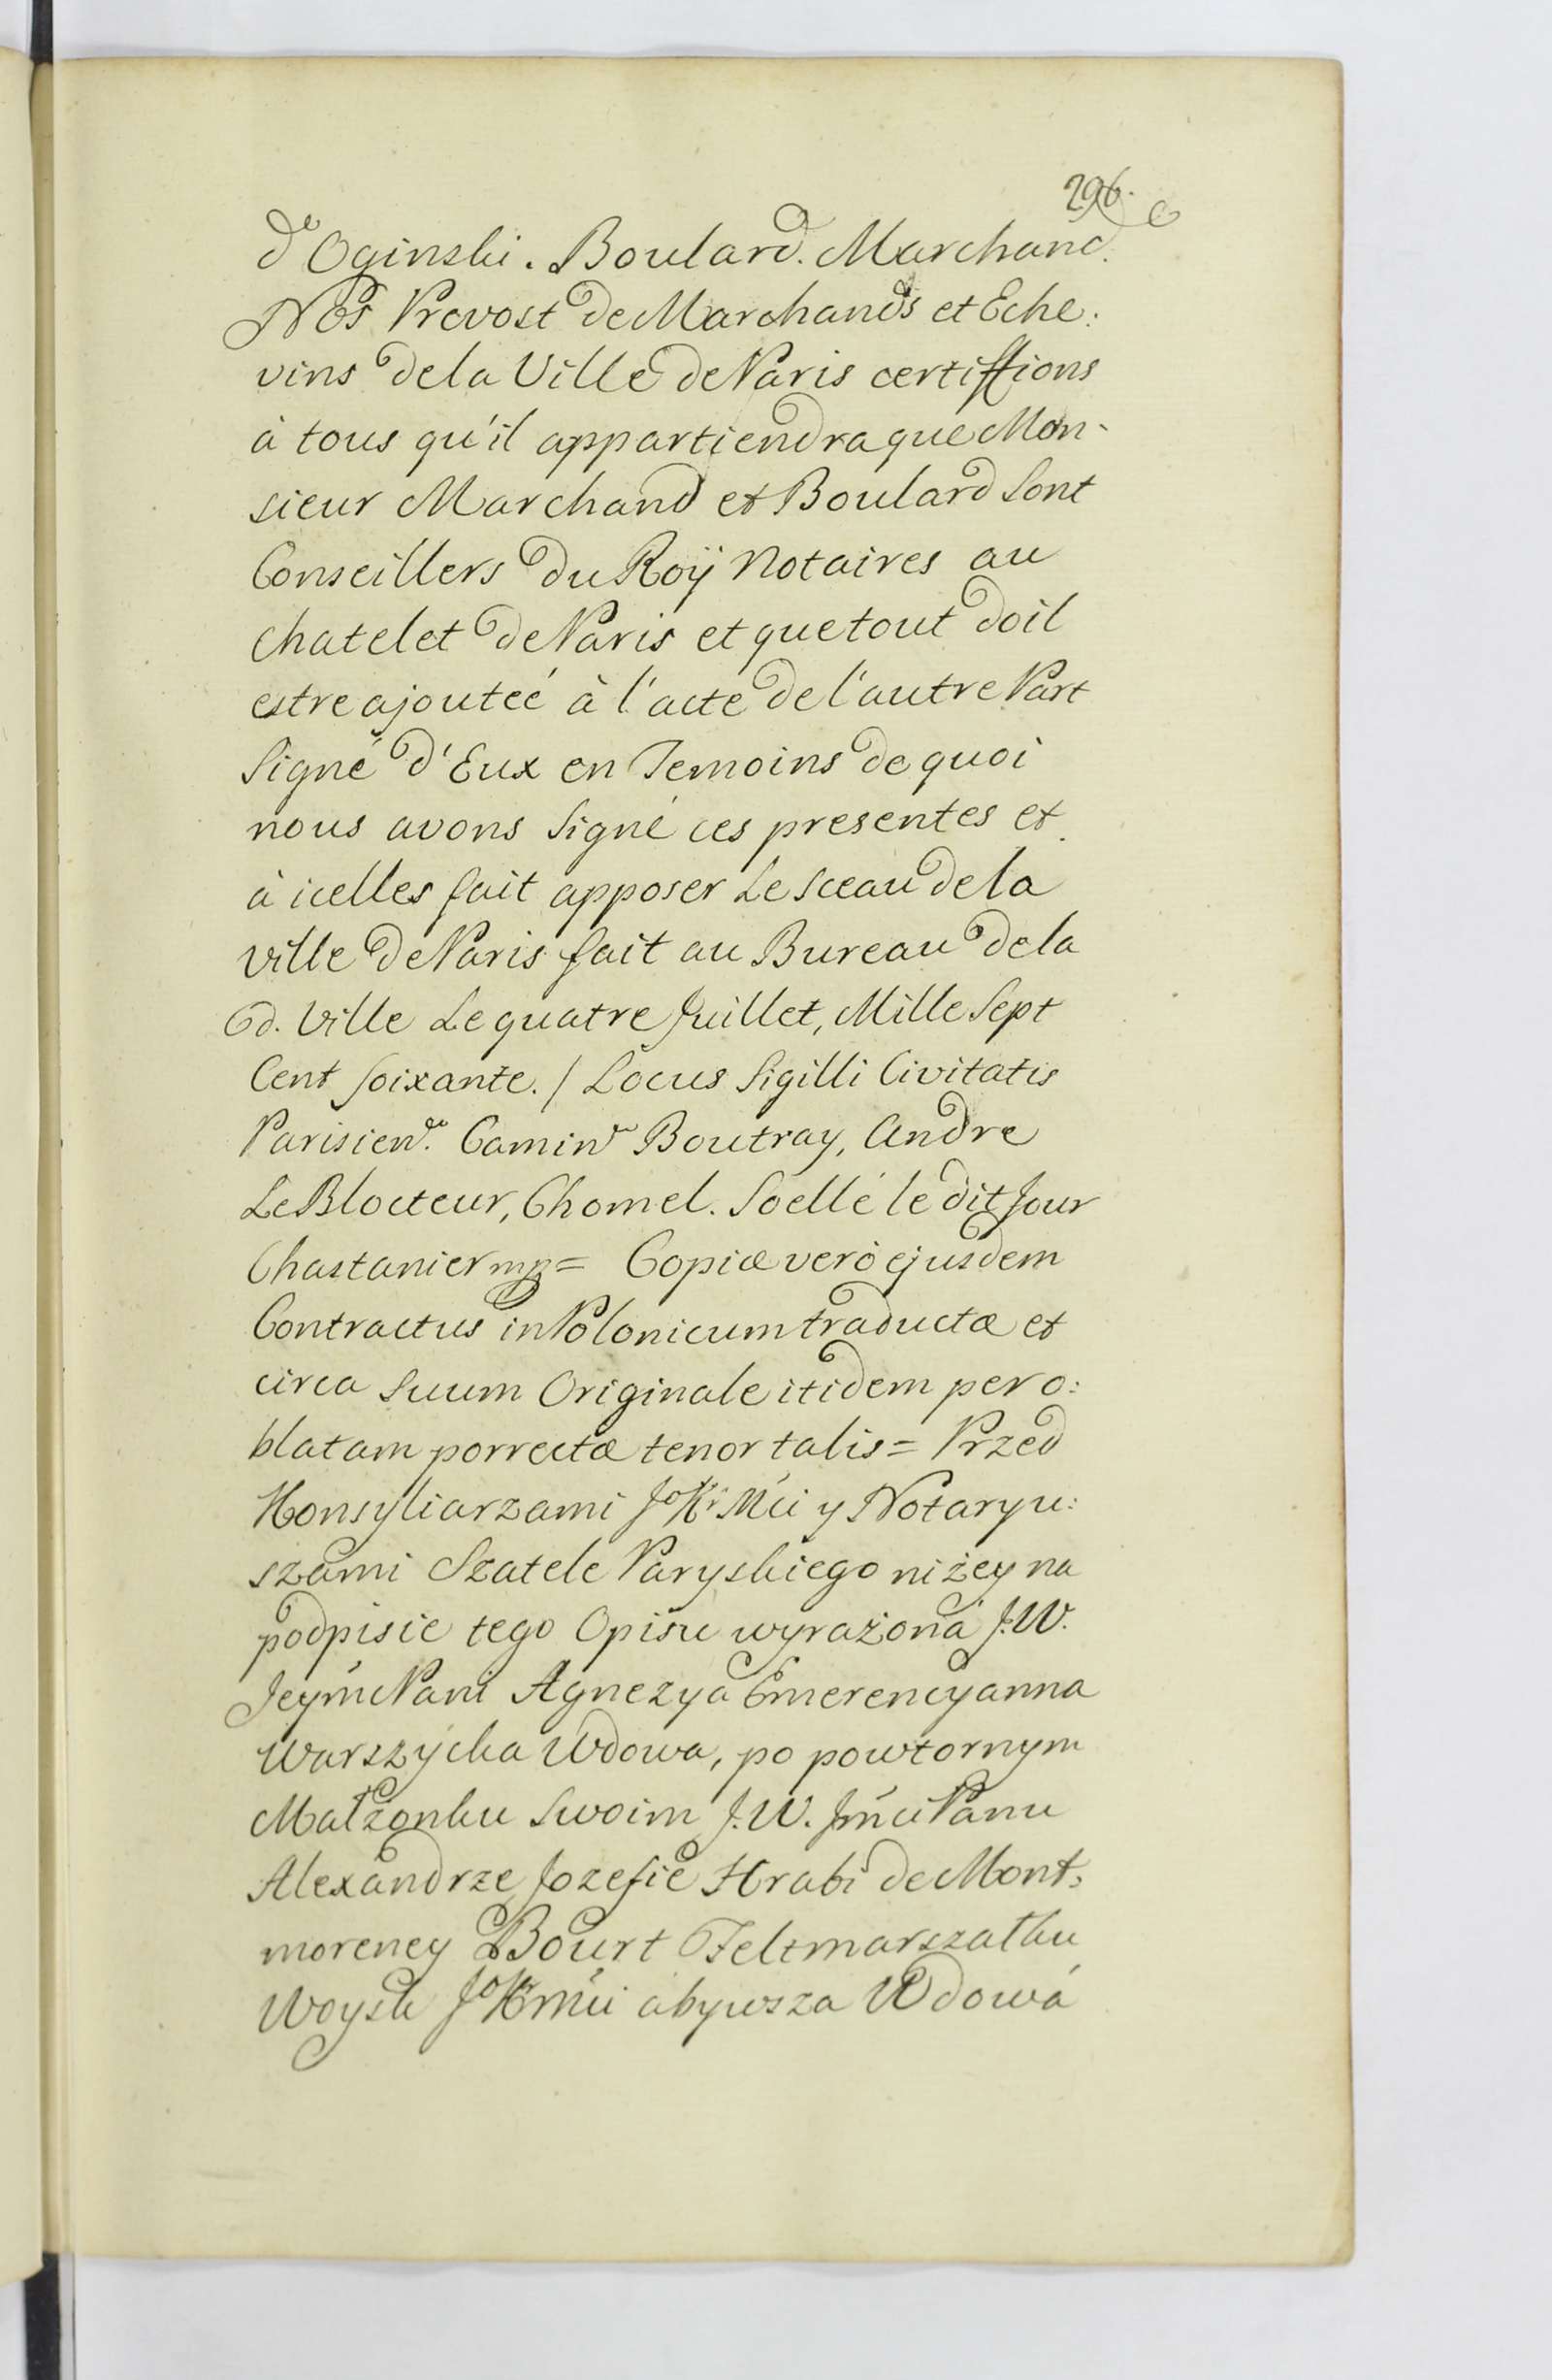 296.
d'Oginski. Boulard. Marchand.
Nos Prevost de Marchands et Eche:
vins de la Ville de Paris certiffions
à tous qu'il appartiendra que Mon-
sieur Marchand et Boulard sont
Conseillers du Roÿ Notaires au
chatelet de Paris et que tout doil
estre ajouteé à l'acte de l'autre Part
signé d'Eux en Temoins de quoi
nous avons signé ces presentes et
à icelles fait apposer Le sceau de la
ville de Paris fait au Bureau de la
d. Ville Le quatre Juillet, Mille sept
Cent soixante. / Locus Sigilli Civitatis
Parisien. Camin Boutray, Andre
Le Blocteur, Chomel. Soellé le dit Jour
Chastanier mp = Copiæ verò ejusdem
Contractus in Polonicum traductæ et
circa suum Originale itidem per o:
blatam porrectæ tenor talis = Przed
Konsyliarzami JoKr Mći y Notaryu:
szami Szatele Paryskiego niżey na
podpisie tego Opisu wyrażoná J.W.
Jeymć Pani Agnezya Emerencyanna
Warszycka Wdowa, po powtornym
Małżonku swoim J.W. Jmći Panu
Alexandrze Jozefie Hrabi de Mont:
morency Bourt Feltmarszałku
Woysk JoKrmći abywsza Wdowá